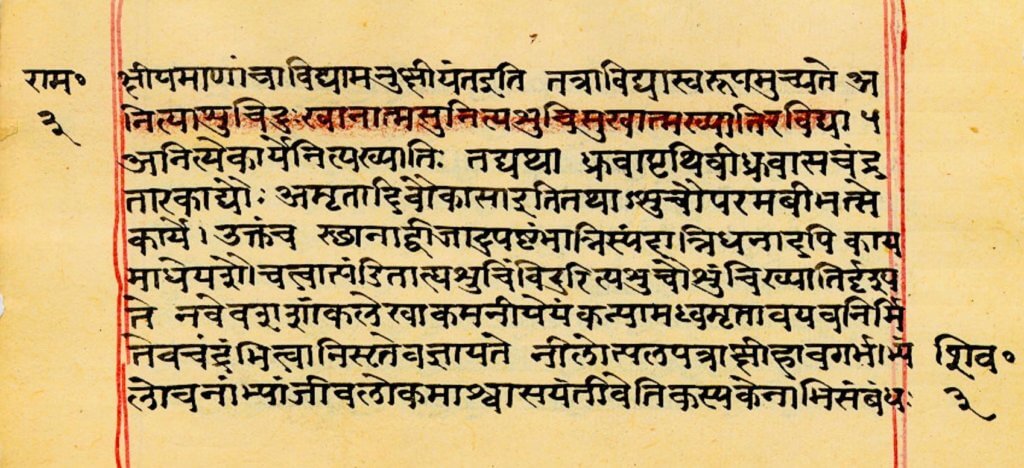 राम॰ क्षीयमाणांचाविद्यामनुक्षीयंतइति तत्राविद्यास्वरूपमुच्यते अ
३ नित्याशुचिदुःखानात्मसुनित्यशुचिसुखात्मख्यातिरविद्या ५
अनित्येकार्येनित्यख्यातिः तद्यथा ध्रुवापृथिवीध्रुवासचंद्र
तारकाद्यौः अमृतादिवौकासाइतितथाऽशुचौपरमबीभत्से
कार्ये। उक्तंच स्छानाद्बीजादुपष्टंभान्निस्पंदान्निधनादपि काय
माधेयशौचत्वात्पंडिताह्यशुचिंविदुरित्यशुचौशुचिख्यातिर्दृश्य
ते नवेवशशांकलेखाकमनीयेयंकन्यामध्वमृतावयवनिर्मि
तेवचंद्रंभित्वानिसृतेवज्ञायते नीलोत्पलपत्राक्षीहावगर्भाभ्य शिव॰
लोचनांभ्यांजीवलोकमाश्वासयंतीवेतिकस्यकेनाभिसंबंधः ३